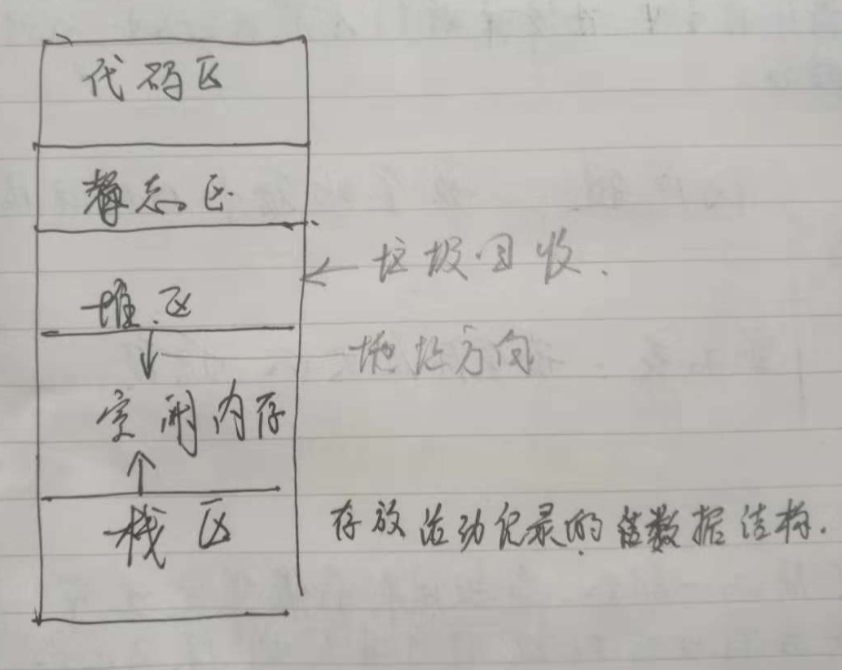 代码区
静态区
垃圾回收.
堆区
地址方向
空闲内存
栈区
存放活动记录的 数据结构.